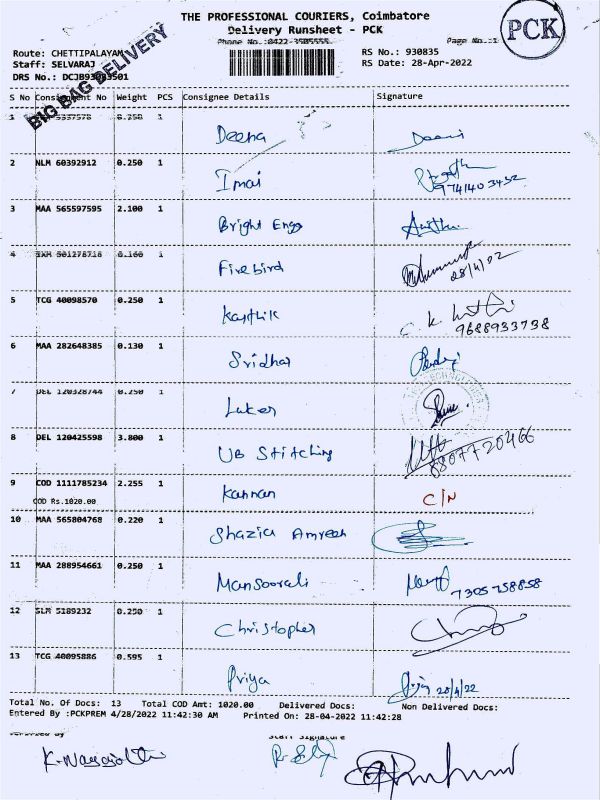 THE PROFESSIONAL COURIERS, Coimbatore
Delivery Runsheet - PCK
PCK
Phone No.:0422-3505555
Page No.:1
Route: CHETTIPALAYAM
RS No.: 930835
Staff: SELVARAJ
RS Date: 28-Apr-2022
DRS No.:
BIG BAG DELIVERY
S No Consignment No Weight PCS Consignee Details Signature
1 0.250 1 Deena
2 NLM 60392912 0.250 1 Imai 9741403432
3 MAA 565597595 2.100 1 Bright Engg
4 0.160 1 Firebird 28/4/22
5 TCG 40098570 0.250 1 Karthik 9688933738
6 MAA 282648385 0.130 1 Sridhar
7 DEL 120328744 0.250 1 Luker
8 DEL 120425598 3.800 1 UB Stitching 8807720466
9 COD 1111785234 2.255 1 Kannan C/N
COD Rs.1020.00
10 MAA 565804768 0.220 1 Shazia Amreen
11 MAA 288954661 0.250 1 Mansoorali 7305758858
12 SLM 5189232 0.250 1 Christopher
13 TCG 40095886 0.595 1 Priya 28/4/22
Total No. Of Docs: 13 Total COD Amt: 1020.00 Delivered Docs: Non Delivered Docs:
Entered By :PCKPREM 4/28/2022 11:42:30 AM Printed On: 28-04-2022 11:42:28
Verified By Staff Signature